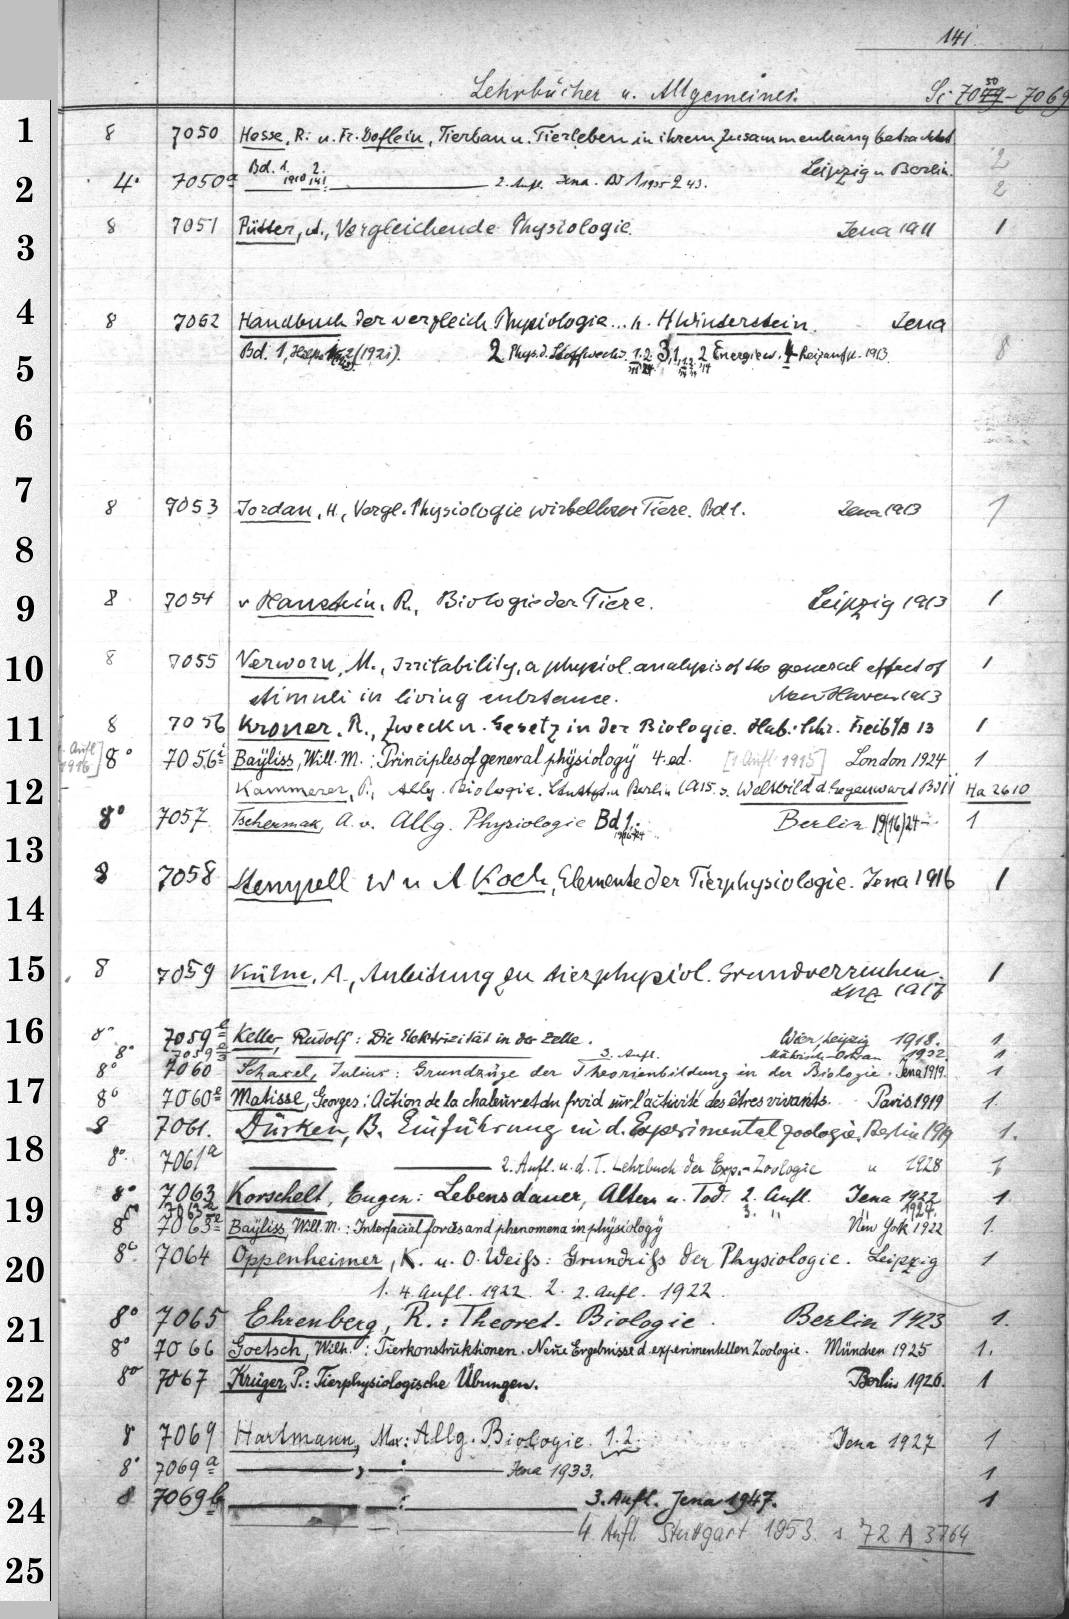 141
Lehrbücher u. Allgemeines. Si 7050 - 7069
1
8 7050 Hesse, R. u. Fr. Doflein, Tierbau u. Tierleben in ihrem Zusammenhang betrachtet
Bd. 1. 1910 2. 1914 Leipzig u Berlin. 2
2 4° 7050a 2. Aufl. Jena. Bd 1 1935 2 43. 2
3 8 7051 Pütter, A., Vergleichende Physiologie. Jena 1911 1
4 8 7052 Handbuch der vergleich. Physiologie... h. H Winterstein. Jena
5 Bd. 1, (1921). 2 Phys. d. Stoffwechs. 1.2. 3,1, 2 Energiew. 4 Reizaufn. 1913 8
6
7 8 7053 Jordan, H., Vergl. Physiologie wirbelloser Tiere. Bd 1. Jena 1913 1
8
9 8 7054 v Hanstein, R., Biologie der Tiere. Leipzig 1913 1
10 8 7055 Verworn, M., Irritability, a physiol. analysis of the general effect of 1
stimuli in living substance. New Haven 1913
11 8 7056 Kroner, R., Zweck u. Gesetz in der Biologie. Hab.-Schr. Freib i/B 13 1
1. Aufl 1916] 8° 7056a Bayliss, Will. M.: Principles of general physiology 4. ed. [1 Aufl. 1915] London 1924 1
12 Kammerer, P., Allg. Biologie. Stuttg. u Berlin 1915. s. Weltbild d. Gegenwart Bd Ha 2610
8° 7057 Tschermak, A. v. Allg. Physiologie Bd 1. Berlin 19(16)24- 1
13
8 7058 Stempell W u A Koch, Elemente der Tierphysiologie. Jena 1916 1
14
15 8 7059 Kühn, A., Anleitung zu tierphysiol. Grundversuchen.
Lpz 1917 1
16 8° 7059e Keller, Rudolf: Die Elektrizität in der Zelle. Wien, Leipzig 1918. 1
8° 7059 3. Aufl. Mährisch-Ostrau 1932 1
8° 7060 Schaxel, Julius: Grundzüge der Theorienbildung in der Biologie. Jena 1919. 1
17 8° 7060e Matisse, Georges: Action de la chaleur et du froid sur l'activité des êtres vivants. Paris 1919 1.
8 7061. Dürken, B. Einführung in d. Experimentalzoologie. Berlin 1919 1.
18 8° 7061a 2. Aufl. u. d. T. Lehrbuch der Exp.-Zoologie u 1928 1
8° 7063 Korschelt, Eugen: Lebensdauer, Altern u. Tod. 2. Aufl. Jena 1922 1
19 8° 7063a 3. " " 1924.
8° 7063e Bayliss, Will. M.: Interfacial forces and phenomena in physiology New York 1922 1.
20 8° 7064 Oppenheimer, K. u. O. Weiß: Grundriß der Physiologie. Leipzig 1
1. 4. Aufl. 1922. 2. 2. Aufl. 1922.
21 8° 7065 Ehrenberg, R.: Theoret. Biologie. Berlin 1923 1.
8° 7066 Goetsch, Wilh.: Tierkonstruktionen. Neue Ergebnisse d. experimentellen Zoologie. München 1925 1.
22 8° 7067 Krüger, P.: Tierphysiologische Übungen. Berlin 1926. 1
23 8 7069 Hartmann, Max: Allg. Biologie. 1.2. Jena 1927 1
8° 7069a Jena 1933. 1
24 8 7069b 3. Aufl. Jena 1947. 1
4. Aufl. Stuttgart 1953. s 72 A 3764
25